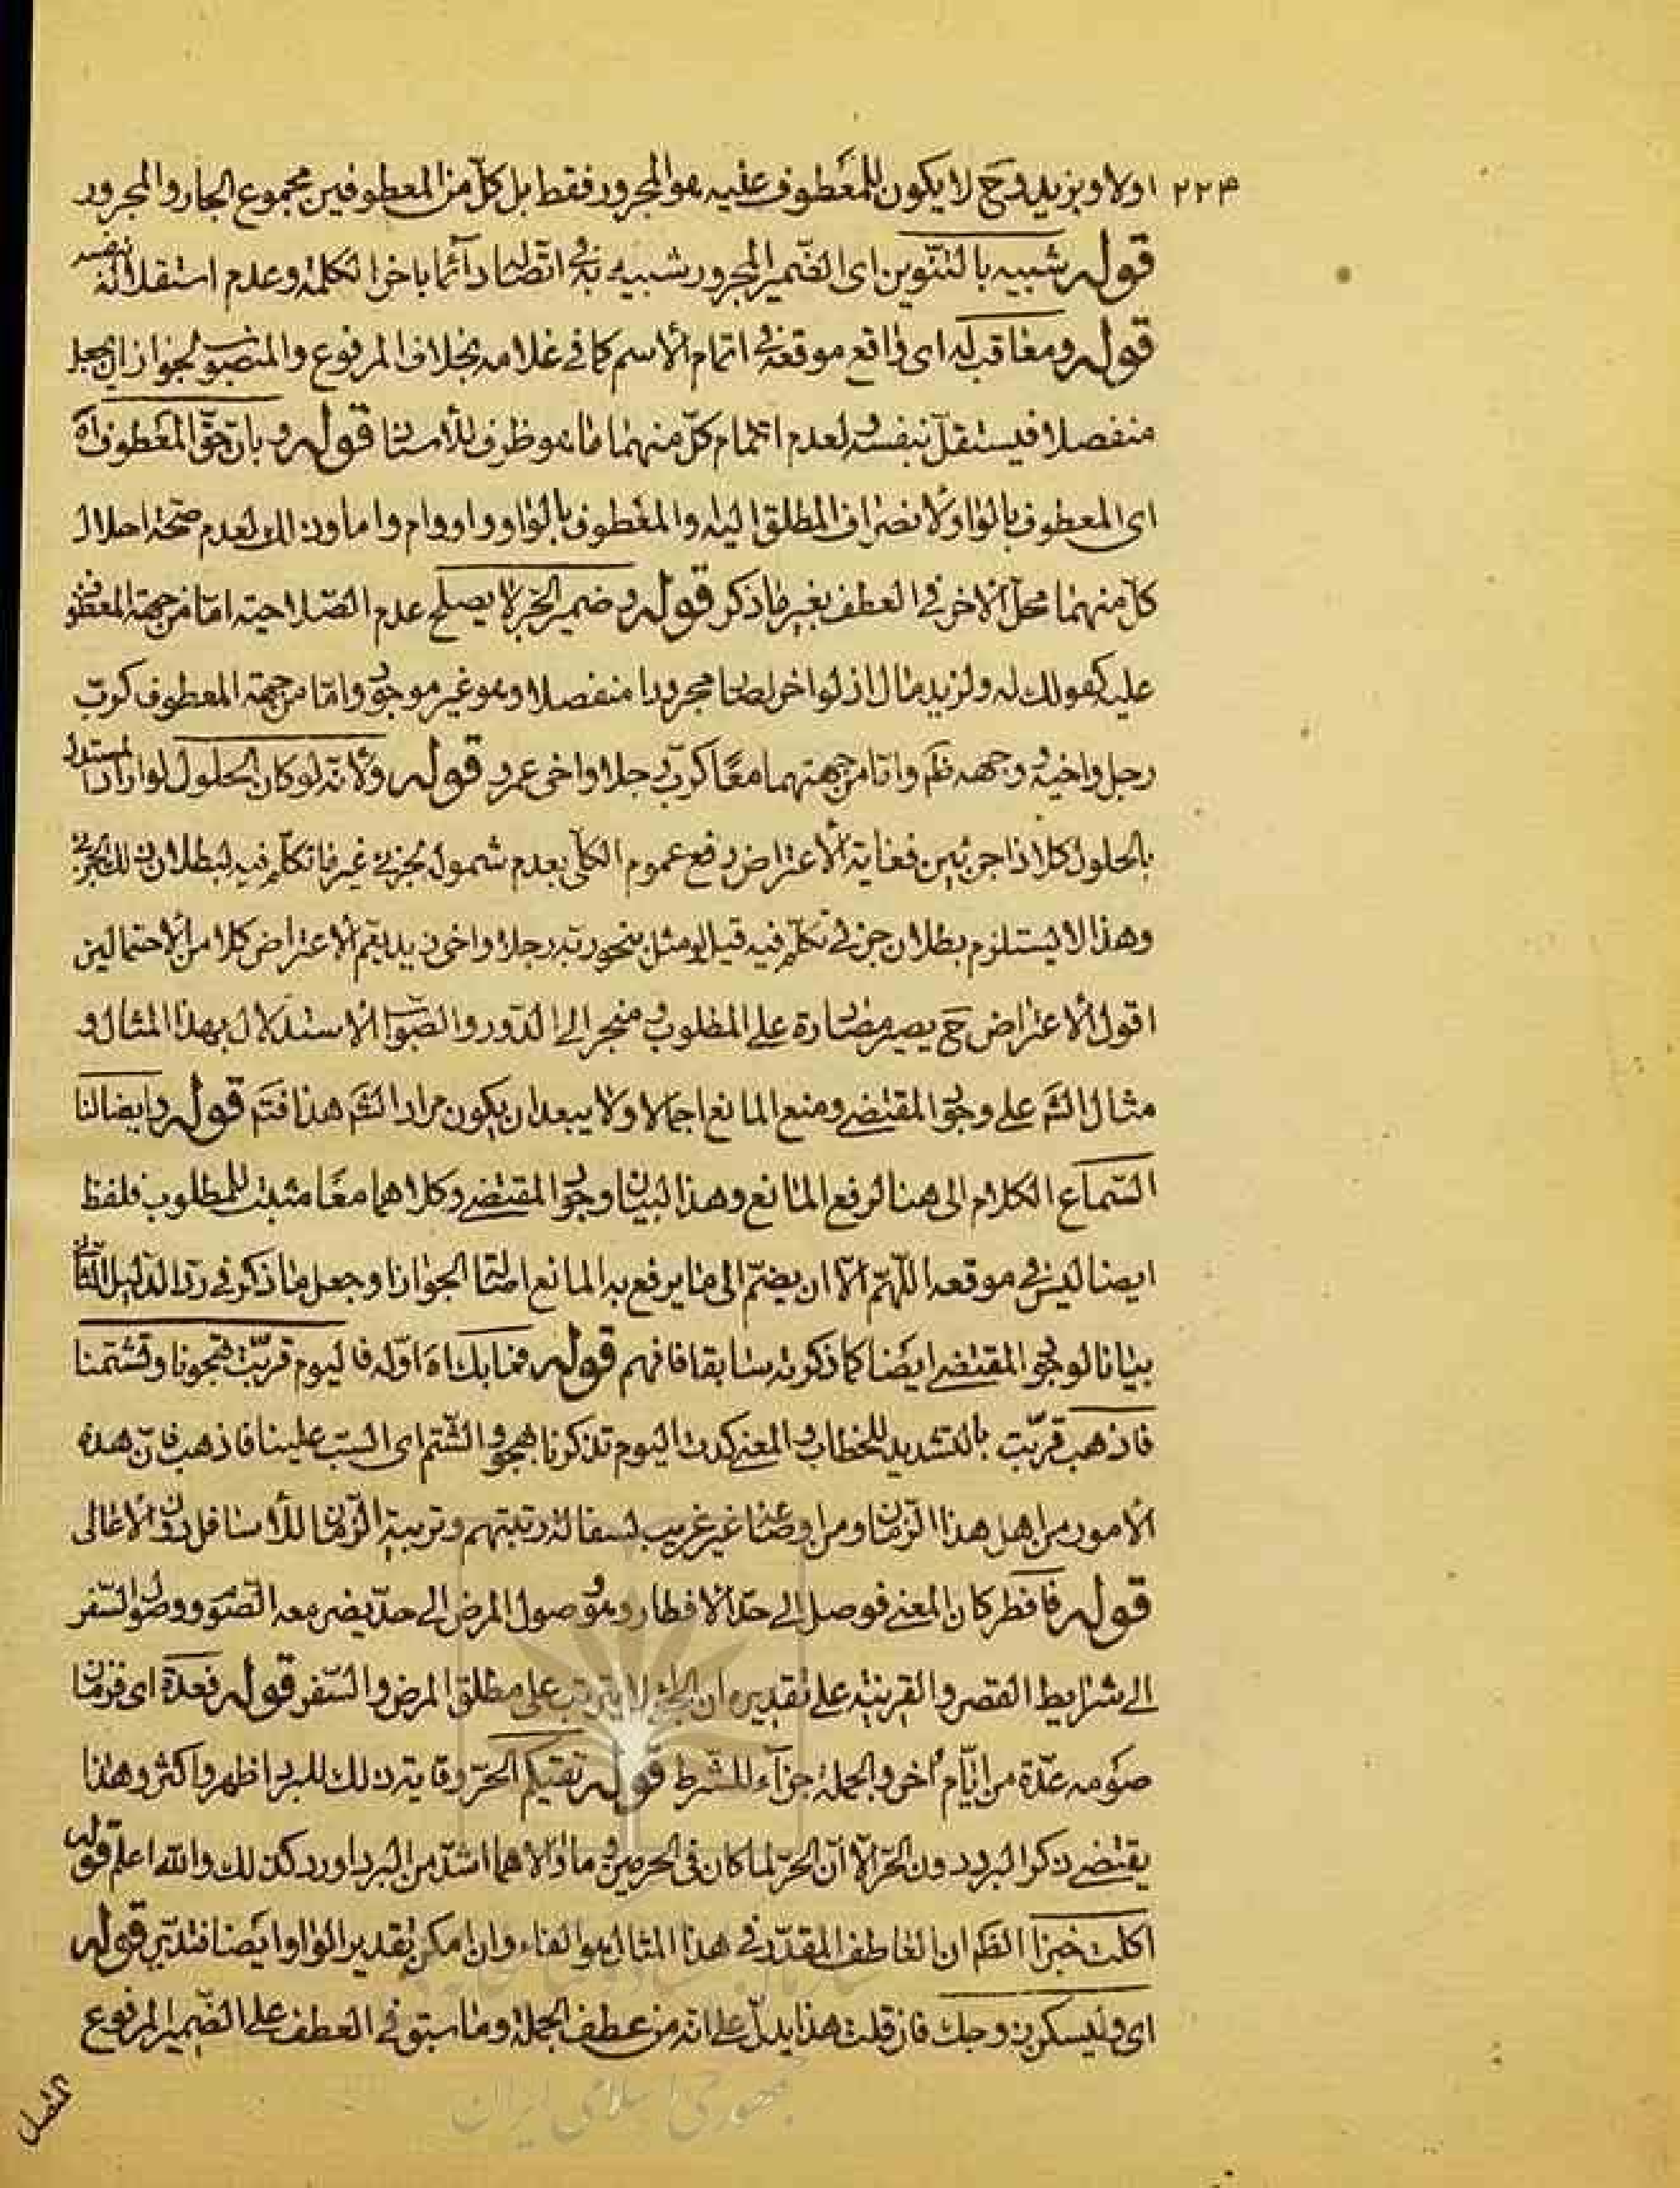 ٢٢٤ اولا وبزيد وح لا يكون المعطوف عليه هو المجرور فقط بل كل من المعطوفين مجموع الجار والمجرور
قوله شبيه بالتنوين اى الضمير المجرور شبيه به فى اتصاله دائما باخر الكلمة وعدم استقلاله بنفسه
قوله ومعاقب له اى واقع موقعه فى اتمام الاسم كما فى غلامه بخلاف المرفوع والمنصوب لجواز ان يجعل
منفصلا فيستقل بنفسه لعدم اتمام كل منهما ما هو ظرف للاسناد قوله وبان حق المعطوف اه
اى المعطوف بالواو لانصراف المطلق اليه والمعطوف بالواو واو وام واما ون الك لعدم صحة احلال
كل منهما محل الاخر فى العطف بغير ما ذكر قوله وضمير الجر لا يصلح عدم الصلاحية اما من جهة المعطوف
عليه كقولك له ولزيد مال اذ لو اخر لصار مجرورا منفصلا وهو غير موجود واما من جهة المعطوف كرب
رجل واخيه وجهه ظم واما من جهتهما معا كرب رجلا واخى عمرو قوله ولانه لو كان الحلول لو اراد المستدل
بالحلول كلا ذا جزئين فغاية الاعتراض رفع عموم الكلى بعدم شمول لجزئى غير ما تكلم فيه لبطلان ذلك الجزئى
وهذا لا يستلزم بطلان جزئى تكلم فيه قيل او مثل بنحو ربه رجلا واخى زيد يعم الاعتراض كلا من الاحتمالين
اقول الاعتراض ح يصير مصادرة على المطلوب منجر الى الدور والصواب الاستدلال بهذا المثال و
مثال الشم على وجود المقتضى ومنع المانع اجمالا ولا يبعد ان يكون مراد الشم هذا فتم قوله وايضا لنا
السماع الكلام الى هنا لرفع المانع وهذا لبيان وجود المقتضى وكلاهما معا مثبت للمطلوب فلفظ
ايضا ليس فى موقعه اللهم الا ان يضم الى ما يرفع به المانع امثال الجواز او جعل ما ذكر فى رد الدليل الثانى
بيانا لوجود المقتضى ايضا كما ذكرته سابقا فافهم قوله فما بك اه اوله فاليوم قربت تهجونا وتشتمنا
فاذهب قربت بالتشديد للخطاب والمعنى كدت اليوم تذكرنا بهجو والشتم اى السب علينا فاذهب فان هذه
الامور من اهل هذا الزمان ومن اوضاعه غير غريب لسفالة رتبتهم وتربية الزمان للاسافل دون الاعالى
قوله فافطر كان المعنى فوصل الى حد الافطار وهو وصول المرض الى حد يضر معه الصوم ووصول السفر
الى شرايط القصر والقرينة على تقديره ان الجزاء لا يترتب على مطلق المرض والسفر قوله فعدة اى فزمان
صومه عدة من ايام اخر والجملة جزاء للشرط قوله تقيكم الحر وقاية ذلك للبرد اظهر واكثر وهذا
يقتضى ذكر البرد دون الحر الا ان الحر لما كان فى الحرمين وما والاهما اشد من البرد اورد كذلك والله اعلم قوله
اكلت خبزا الظم ان العاطف المقدر فى هذا المثال هو الفاء وان امكن تقدير الواو ايضا فتدبر قوله
اى وليسكن زوجك فان قلت هذا يدل على انه من عطف الجملة وما سبق فى العطف على الضمير المرفوع
المتصل
جمهورى اسلامى ايران